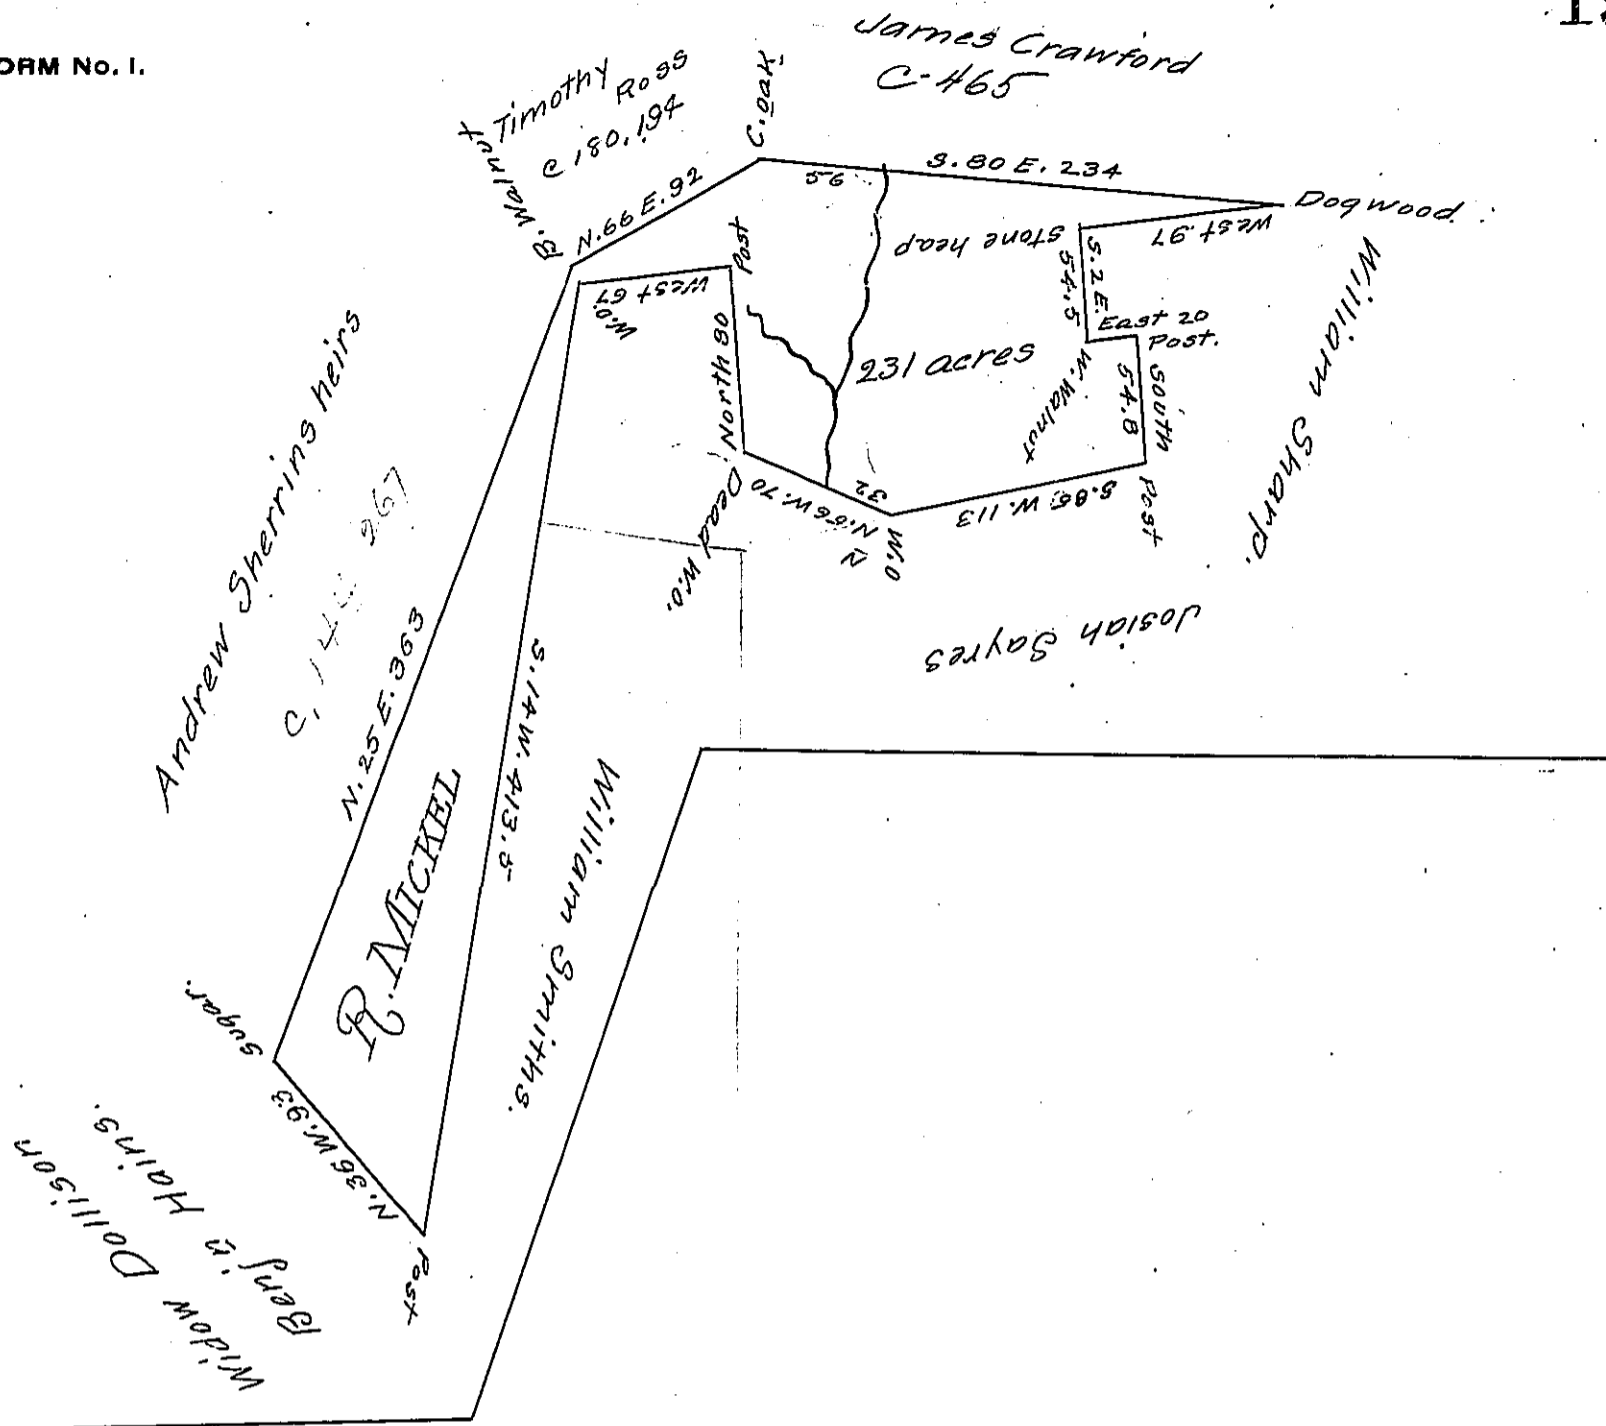 FORM No. 1.
James Crawford
C-465
Timothy Ross
C 180, 194
B. Walnut
C. oak
N. 66 E. 92
56
S. 80 E. 234
Dogwood
West 97
stone heap
S. 2 E.
54.5
East 20
Post.
W. Walnut
South
54.8
Post
William Sharp.
S. 85 W. 113
W.O
32
N. 66 W. 70
N
Dead W.O.
North 80
Post
West 67
W.O.
231 acres
Josiah Sayres
Andrew Sherrins heirs
N. 25 E. 363
S. 14 W. 413.5
R. MICKEL
William Smiths.
Sugar.
N. 36 W. 93
Post
Benj'n Hains.
Widow Dollison